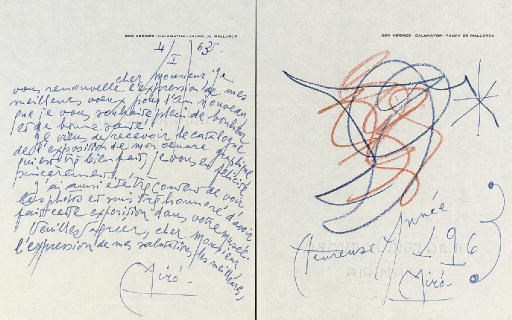 SON ABRINES - CALAMAYOR - PALMA DE MALLORCA
4/I/63.
cher Monsieur, je
vous renouvelle l'expression de mes
meilleurs voeux pour l'An nouveau
que je vous souhaite plein de bonheur
et de bonne santé!
Je viens de recevoir le catalogue
de l'exposition de mon œuvre graphique
qui est très bien fait, je vous en félicite
sincèrement!
J'ai aussi été très content de voir
les photos et suis très honneré d'avoir
fait cette exposition dans votre Musée.
Veuillez agréer, cher Monsieur
l'expression de mes salutations les meilleures,
Miró.
SON ABRINES - CALAMAYOR - PALMA DE MALLORCA
Heureuse Année
1963
Miró.